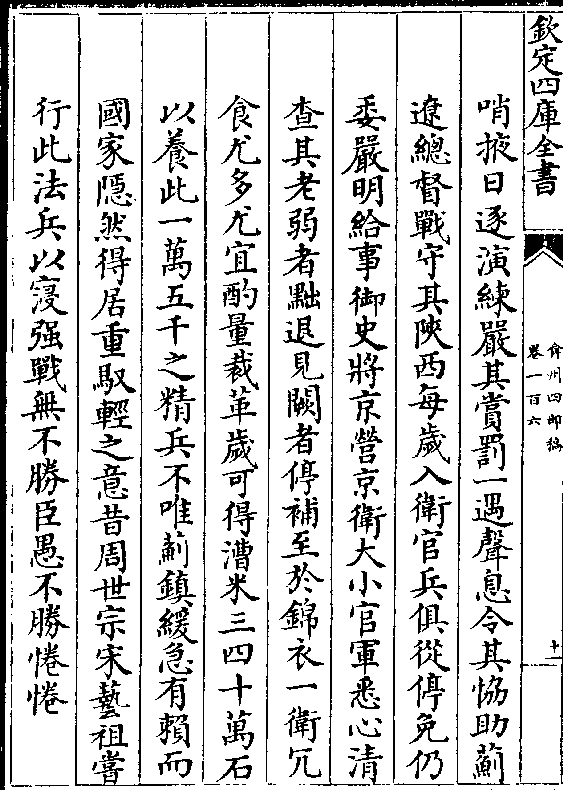 欽定四庫全書
弇州四部稿
卷一百六
十一
哨掖日逐演練嚴其賞罰一遇聲息令其恊助薊
遼總督戰守其陜西每歲入衛官兵俱從停免仍
委嚴明給事御史將京營京衛大小官軍悉心清
查其老弱者黜退見闕者停補至於錦衣一衛冗
食尤多尤宜酌量裁革歲可得漕米三四十萬石
以養此一萬五千之精兵不唯薊鎮緩急有賴而
國家隱然得居重馭輕之意昔周世宗宋藝祖嘗
行此法兵以寖强戰無不勝臣愚不勝惓惓